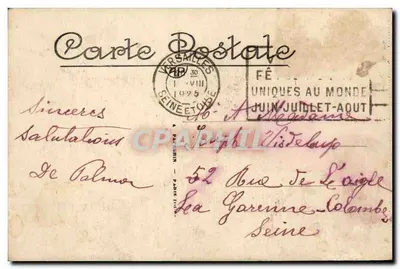 Carte Postale
VERSAILLES
1 VIII
1925
SEINE ET OISE
FÊ
UNIQUES AU MONDE
JUIN-JUILLET-AOUT
Sincères
Salutations
De Palmor
A Madame
Visdeloup
52 Rue de L'aigle
La Garenne-Colombes
Seine
CPArama.com